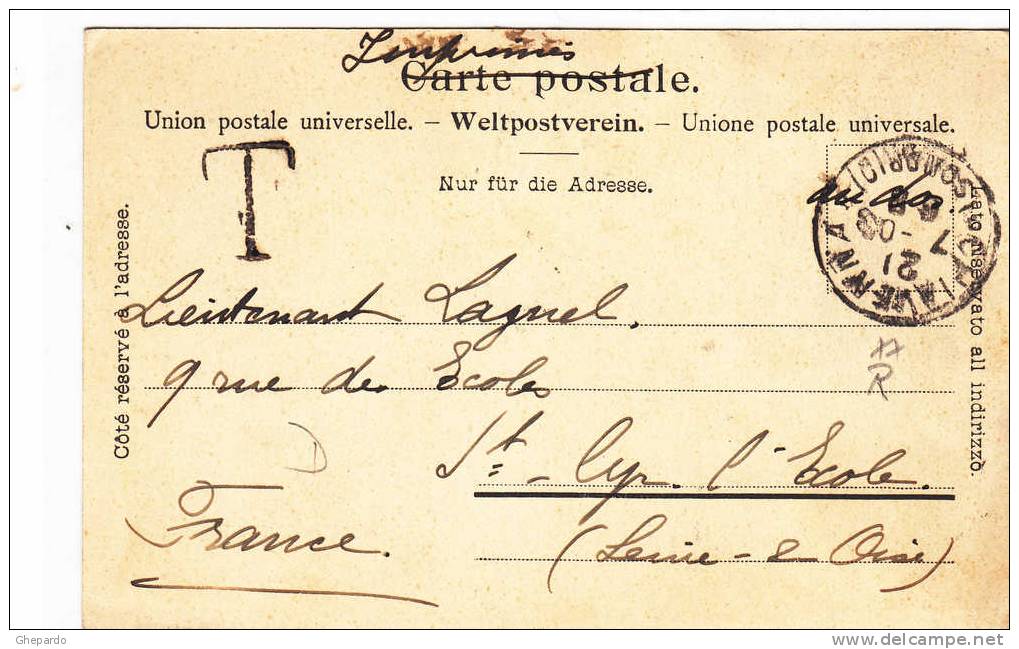 Imprimés
Carte postale.
Union postale universelle. – Weltpostverein. – Unione postale universale.
Nur für die Adresse.
T
au dos.
21
7
Côté réservé à l'adresse.
Lato riservato all indirizzo.
Lieutenant Laguel,
9 rue des Ecoles
St-Cyr. l'Ecole.
(Seine-&-Oise)
France.
D
R
Ghepardo
www.delcampe.net